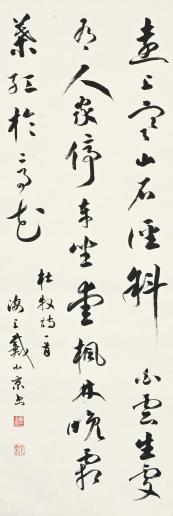 遠上寒山石徑斜白雲生處
有人家停車坐愛楓林晚霜
葉紅於二月花
杜牧詩一首
海上戴小京書